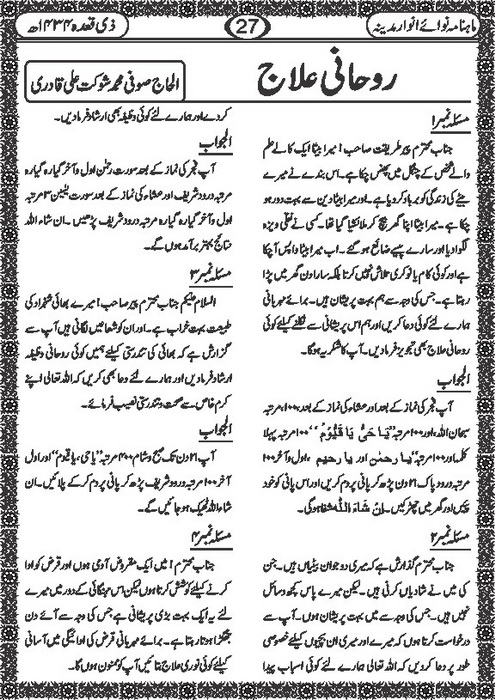 ماہنامہ نوائے انوار مدینہ
27
ذی قعدہ ۱۴۳۴ھ
روحانی علاج
الحاج صوفی محمد شوکت علی قادری
مسئلہ نمبر۱
جناب محترم پیر طریقت صاحب! میرا بیٹا ایک کالے علم
والے شخص کے چنگل میں پھنس چکا ہے۔ اس بندے نے میرے
بیٹے کی زندگی کو برباد کر دیا ہے۔ اور میرا بیٹا دین سے بہت دور ہو
چکا ہے۔ میرا بیٹا اپنا گھر بیچ کر ملائشیا گیا تھا۔ کسی نے نقلی ویزہ
لگوا دیا اور سارے پیسے ضائع ہو گئے۔ اب میرا بیٹا واپس آ چکا
ہے اور کوئی کام یا نوکری تلاش نہیں کرتا بلکہ سارا دن گھر میں پڑا
رہتا ہے۔ جس کی وجہ سے ہم بہت پریشان ہیں۔ برائے مہربانی
ہمارے لئے کوئی دعا کریں اور ہم اس پریشانی سے نکلنے کیلئے کوئی
روحانی علاج بھی تجویز فرما دیں۔ آپ کا شکریہ ہوگا۔
الجواب
آپ فجر کی نماز کے بعد اور عشاء کی نماز کے بعد ۱۰۰ مرتبہ
سبحان اللہ، اور ۱۰۰ مرتبہ "یَا حَیُّ یَا قَیُّوْمُ" ۱۰۰ مرتبہ پہلا
کلمہ اور ۱۰۰ مرتبہ "یا رحمٰن اور یا رحیم، اول و آخر ۱۰۰
مرتبہ درود پاک ۲۱ دن پڑھ کر پانی پر دم کریں اور اس پانی کو خود
پیں اور گھر میں چھڑکیں۔ اِنْ شَاءَ اللّٰه شفا ہوگی۔
مسئلہ نمبر۲
جناب محترم گزارش ہے کہ میری دو جوان بیٹیاں ہیں۔ جن
کی میں نے شادیاں کرنی ہیں۔ لیکن میرے پاس کچھ وسائل
نہیں ہیں۔ جس کی وجہ سے میں بہت پریشان ہوں۔ آپ سے
درخواست کرتا ہوں کہ میرے اور میری ان بچیوں کیلئے خصوصی
طور پر دعا کریں کہ اللہ تعالی ہمارے لئے کوئی اسباب پیدا
کر دے اور ہمارے لئے کوئی وظیفہ بھی ارشاد فرما دیں۔
الجواب
آپ فجر کی نماز کے بعد سورت رحمٰن اول و آخر گیارہ گیارہ
مرتبہ درود شریف اور عشاء کی نماز کے بعد سورت یٰسین ۳ مرتبہ
اول و آخر گیارہ گیارہ مرتبہ درود شریف پڑھیں۔ ان شاء اللہ
نتائج بہتر برآمد ہوں گے۔
مسئلہ نمبر۳
السلام علیکم جناب محترم پیر صاحب! میرے بھائی شہزاد کی
طبیعت بہت خراب ہے۔ اور ان کو شعائیں لگانی ہیں آپ سے
گزارش ہے کہ بھائی کی تندرستی کیلئے ہمیں کوئی روحانی وظیفہ
ارشاد فرما دیں اور ہمارے لئے دعا بھی کریں کہ اللہ تعالی اپنے
کرم خاص سے صحت و تندرستی نصیب فرمائے۔
الجواب
آپ ۲۱ دن تک صبح و شام ۳۰۰ مرتبہ "یا حی، یا قیوم" اور اول
آخر ۱۰۰ مرتبہ درود شریف پڑھ کر پانی پر دم کر کے پلائیں۔ ان
شاء اللہ ٹھیک ہو جائیں گے۔
مسئلہ نمبر۴
جناب محترم! میں ایک مقروض آدمی ہوں اور قرض کو ادا
کرنے کیلئے کوشش کرتا ہوں لیکن اس مہنگائی کے دور میں میرے
لئے یہ ایک بہت بڑی پریشانی ہے جس کی وجہ سے آئے دن
جھگڑا ہوتا رہتا ہے۔ برائے مہربانی قرض کی ادائیگی میں آسانی
کیلئے کوئی نوری علاج بتائیں آپ کا ممنون ہوں گا۔